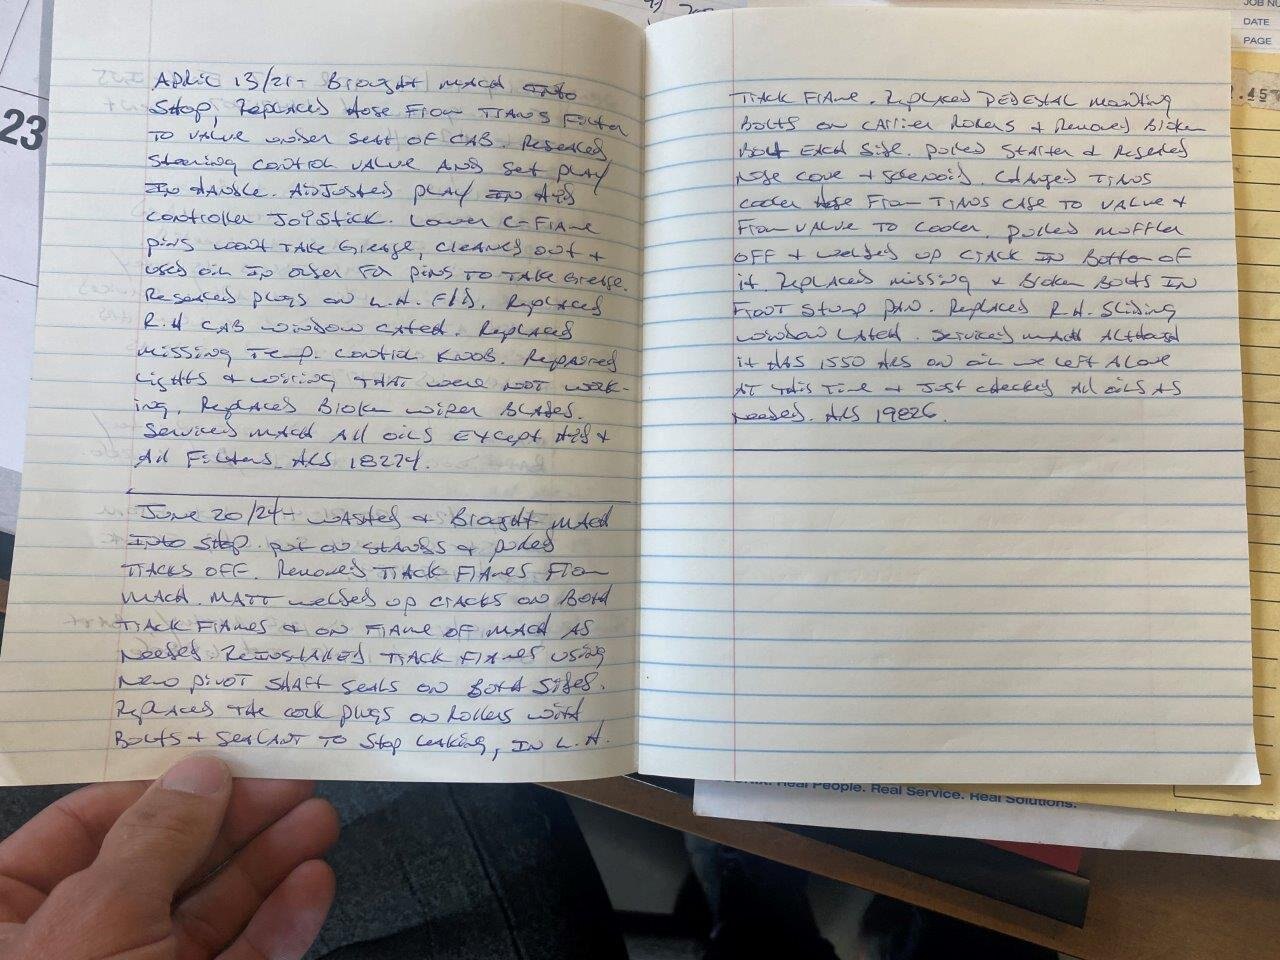 APRIL 13/21 - Brought MACH INTO
SHOP, Replaced Hose From TRANS Filter
TO VALVE under seat of CAB. Resealed
steering control valve AND set play
IN Handle. Adjusted play IN Hyd
controller Joystick. Lower C-Frame
pins wont TAKE Grease, cleaned out +
used oil IN order for pins TO TAKE Grease.
Resealed plugs on L.H. F/D. Replaced
R.H CAB window catch. Replaced
missing Temp. control KNOB. Repaired
Lights + wiring THAT were NOT work-
ing, Replaced Broken wiper Blades.
Serviced MACH All oils EXCEPT Hyd +
All Filters HRS 18274.
June 20/24 - WASHED + Brought MACH
INTO SHOP. put on STANDS + pulled
TRACKS OFF. Removed TRACK FRAMES From
MACH. MATT welded up CRACKS ON BOTH
TRACK FRAMES + ON FRAME OF MACH AS
Needed. REINSTALLED TRACK FRAMES USING
New pivot SHAFT Seals ON BOTH Sides.
Replaced THE cork plugs on Rollers with
BOLTS + SEALANT TO STOP Leaking, IN L.H.
TRACK FRAME. Replaced PEDESTAL mounting
BOLTS on CARRIER Rollers + Removed Broken
Bolt EACH Side. pulled STARTER + Resealed
Nose cone + solenoid. Changed TRANS
cooler Hose From TRANS CASE TO VALVE +
From VALVE TO Cooler. pulled muffler
OFF + welded up CRACK IN Bottom OF
it. Replaced missing + Broken BOLTS IN
FRONT Stump PAN. Replaced R.H. Sliding
window LATCH. Serviced MACH Although
it HAS 1550 HRS ON oil we left Alone
AT THIS Time + Just checked All oils AS
Needed. HRS 19826.
23
JOB NU
DATE
PAGE
Real People. Real Service. Real Solutions.